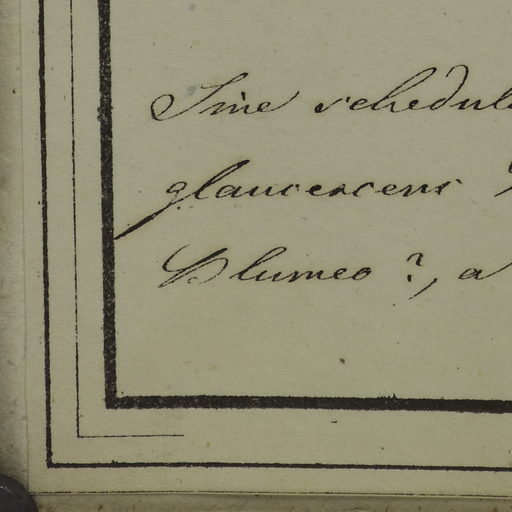 Sine schedul
glaucescens
Blumeo ?, a